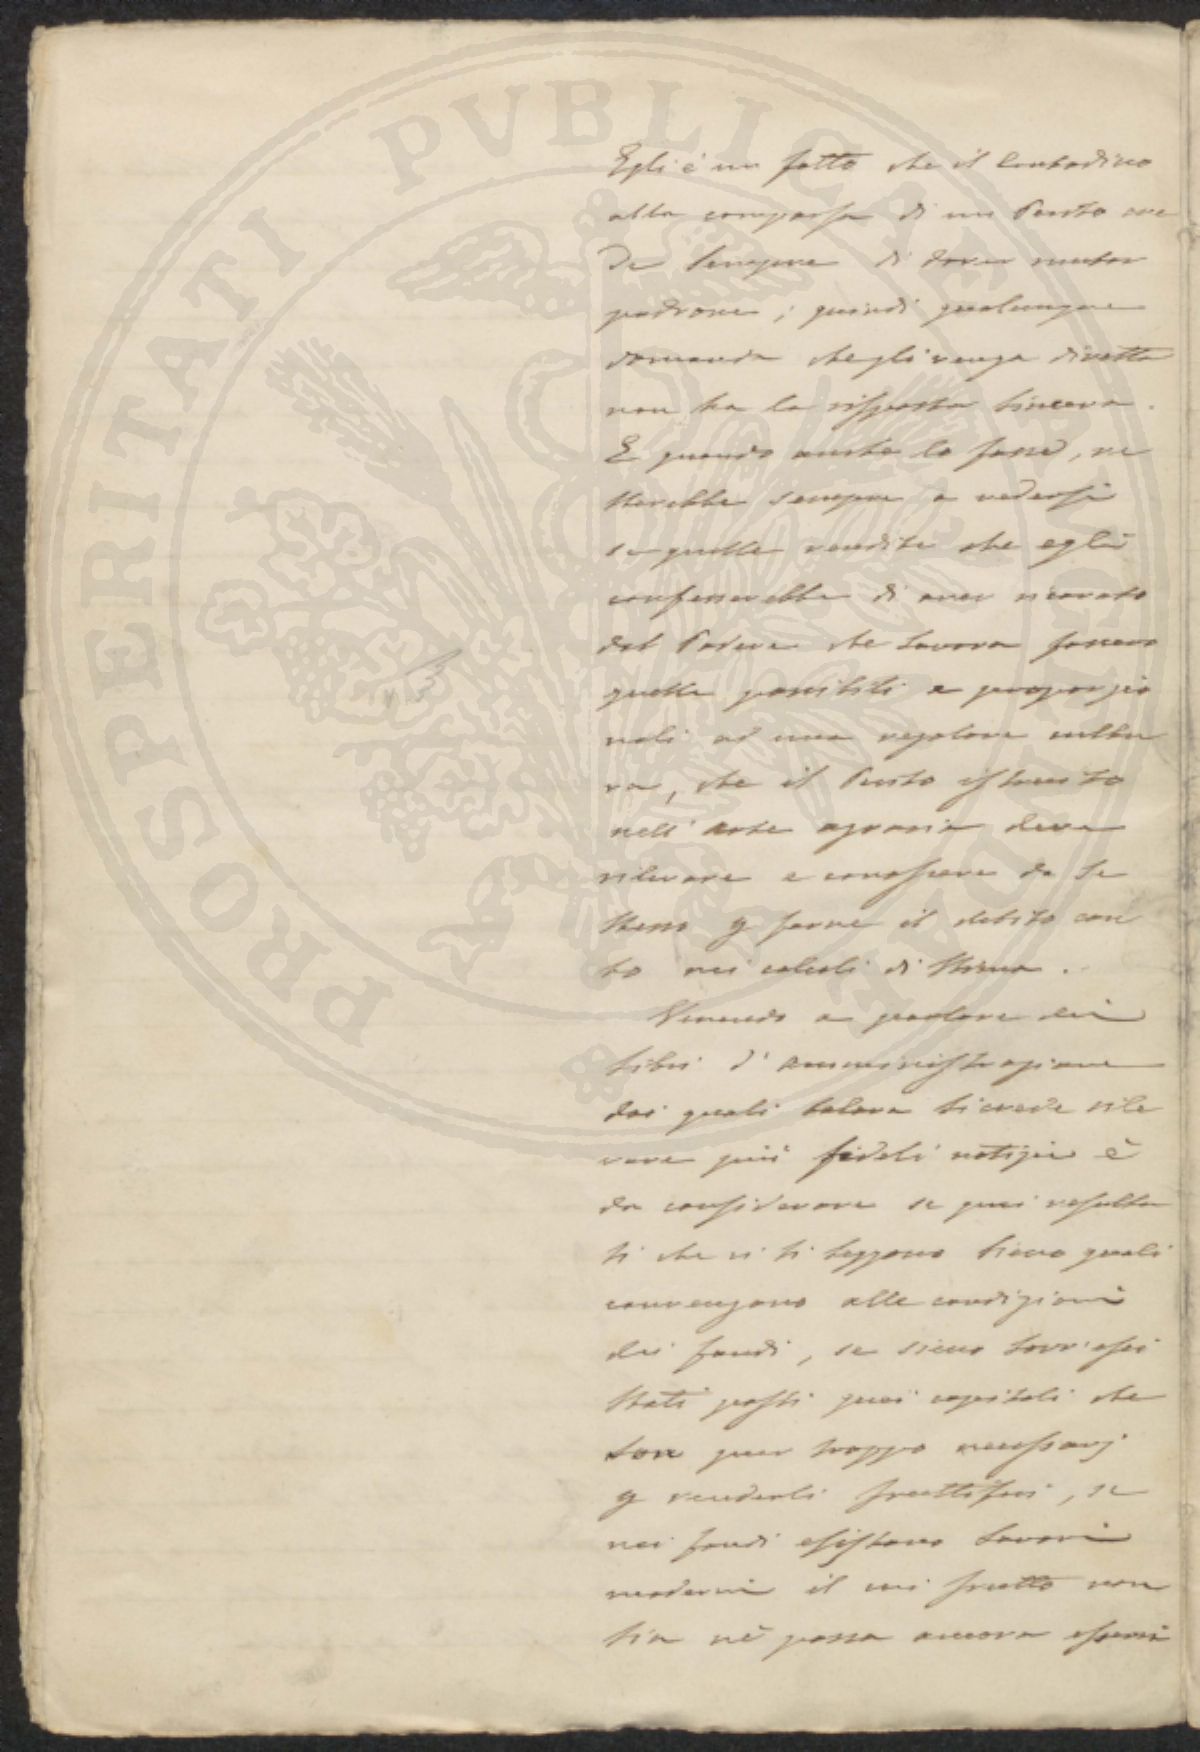 PROSPERITATI PVBLICAE AVGENDAE
Egli è un fatto che il Contadino
alla comparsa di un Perito cre
de sempre di dover mutar
padrone; quindi qualunque
domanda che gli venga diretta
non ha la risposta sincera.
E quando anche la fosse, re
sterebbe sempre a vedersi
se quelle rendite che egli
confesserebbe di aver ricavato
dal Podere che lavora fossero
quelle possibili e proporzio
nali ad una regolare cultu
ra, che il Perito istruito
nell'arte agraria deve
rilevare e conoscere da se
stesso p farne il debito con
to nei calcoli di stima.
Venendo a parlare dei
libri d'amministrazione
dai quali talora si crede rile
vare più fedeli notizie è
da considerare se quei resulta
ti che vi si leggono sieno quali
convengono alle condizioni
dei fondi, se sieno sovr'essi
stati posti quei capitali che
son pur troppo necessarj
p renderli fruttiferi, se
nei fondi esistono lavori
moderni il cui frutto non
sia nè possa ancora essersi